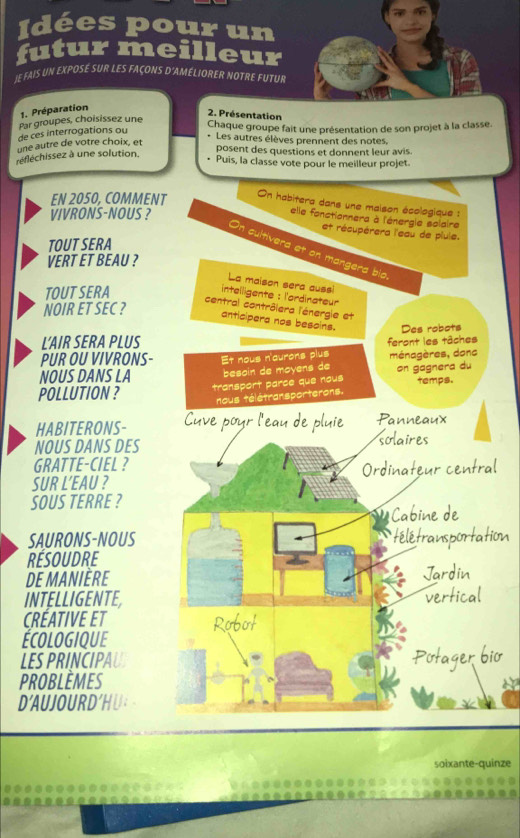 Idées pour un
futur meilleur
JE FAIS UN EXPOSÉ SUR LES FAÇONS D'AMÉLIORER NOTRE FUTUR
1. Préparation
Par groupes, choisissez une
de ces interrogations ou
une autre de votre choix, et
réfléchissez à une solution.
2. Présentation
Chaque groupe fait une présentation de son projet à la classe.
• Les autres élèves prennent des notes,
posent des questions et donnent leur avis.
• Puis, la classe vote pour le meilleur projet.
EN 2050, COMMENT
VIVRONS-NOUS ?
TOUT SERA
VERT ET BEAU ?
TOUT SERA
NOIR ET SEC ?
L'AIR SERA PLUS
PUR OU VIVRONS-
NOUS DANS LA
POLLUTION ?
HABITERONS-
NOUS DANS DES
GRATTE-CIEL ?
SUR L'EAU ?
SOUS TERRE ?
SAURONS-NOUS
RÉSOUDRE
DE MANIÈRE
INTELLIGENTE,
CRÉATIVE ET
ÉCOLOGIQUE
LES PRINCIPAU
PROBLÈMES
D'AUJOURD'HU
On habitera dans une maison écologique :
elle fonctionnera à l'énergie solaire
et récupèrera l'eau de pluie.
On cultivera et on mangera bio.
La maison sera aussi
intelligente : l'ordinateur
central contrôlera l'énergie et
anticipera nos besoins.
Des robots
feront les tâches
ménagères, donc
on gagnera du
temps.
Et nous n'aurons plus
besoin de moyens de
transport parce que nous
nous télétransporterons.
Cuve pour l'eau de pluie
Panneaux
solaires
Ordinateur central
Cabine de
télétransportation
Jardin
vertical
Robot
Potager bio
soixante-quinze